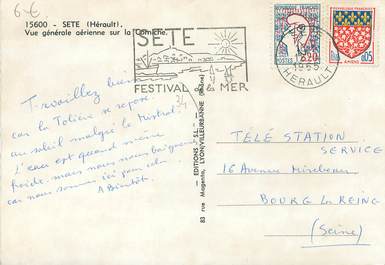 6€
15600 - SETE (Hérault).
Vue générale aérienne sur la Corniche.
SETE
FESTIVAL de la MER
HERAULT
1965
REPUBLIQUE FRANÇAISE
POSTES
0,20
AMIENS
0,05
34
Travaillez bien
car la Tolière se repose
au soleil malgré le Mistral.
L'eau est quand même
froide mais nous nous baignons
car nous sommes ici pour cela.
A Bientôt.
- EDITIONS S.L. -
83 rue Magenta, LYON-VILLEURBANNE (Rhône)
TÉLÉ STATION
SERVICE
16 Avenue Mirabeau
BOURG LA REINE
(Seine)